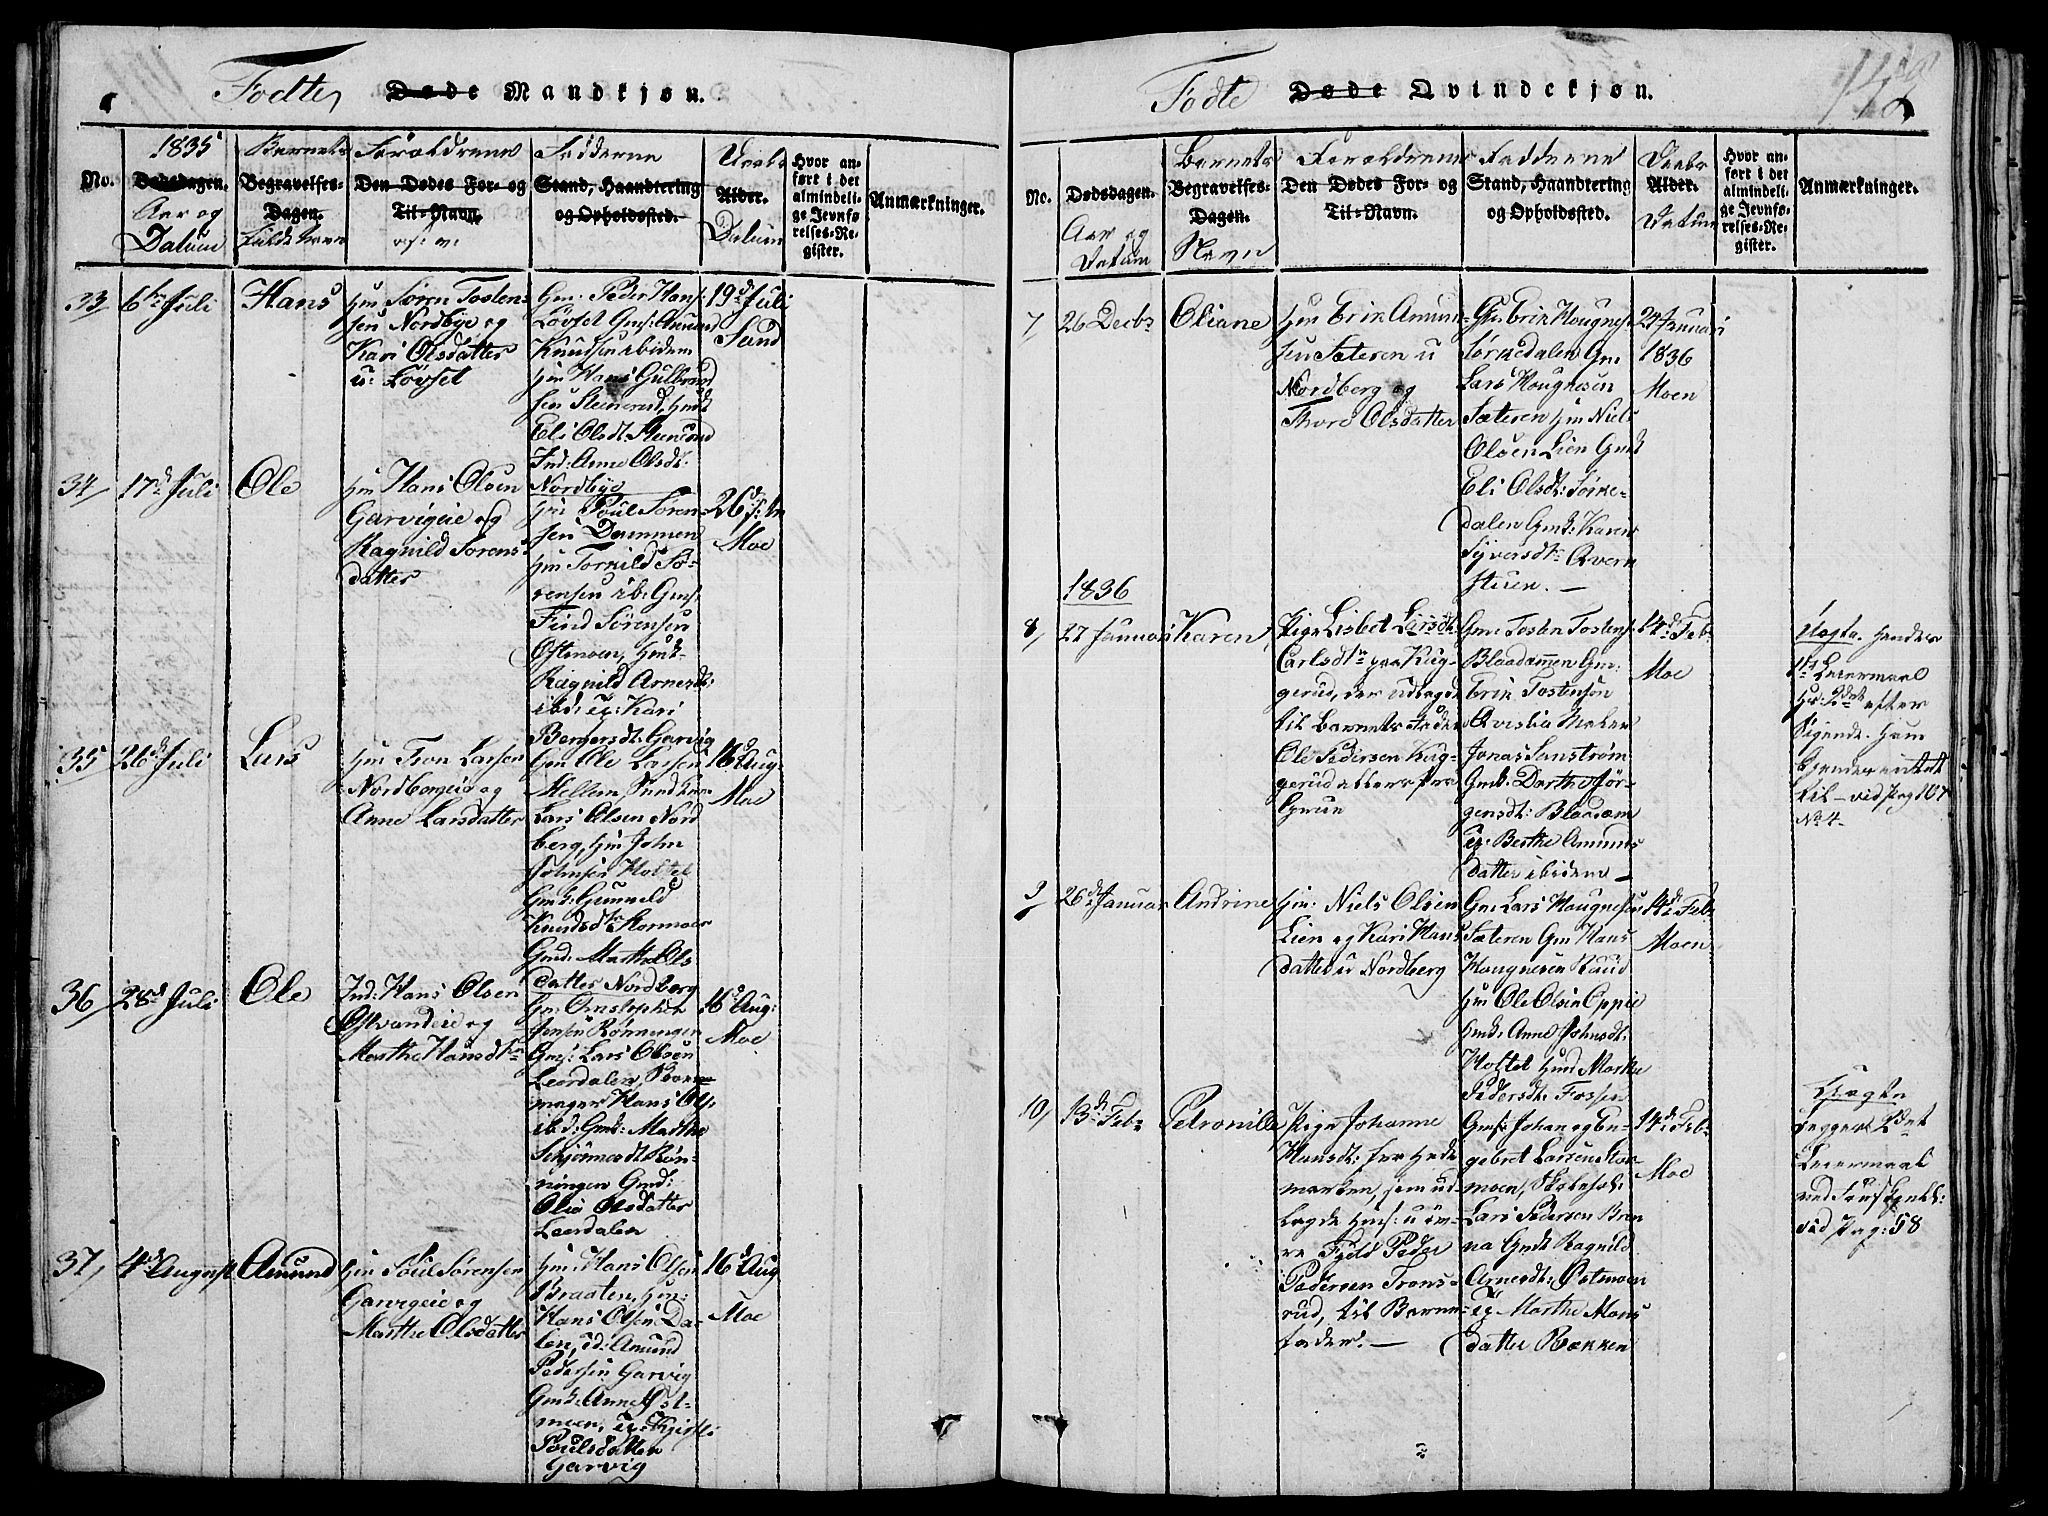 Fødte Døde Mandkjøn.
1835
No.
Dødsdagen.
Aar og
Datum
Barnets
Begravelses-
Dagen.
Forældrene
Den Dødes For- og
Til-Navn.
Fadderne
Stand, Haandtering
og Opholdssted.
Daabs
Alder.
Datum
Hvor an-
ført i det
almindeli-
ge Jevnfø-
relses-Re-
gister.
Anmærkninger.
33
6te Juli
Hans
Hm Søren Tosten-
sen Nordbye og
Kari Olsdatter
u: Løvset
Gm: Peder Hans:
Løvset Gms: Amund
Knudsen ibidem
Hm Hans Gulbrand
sen Steinerud, Hmk
Eli Olsdt: Steinerud
Ind: Anne Olsdt:
Nordbye
19d Juli
Sand
34
17d Juli
Ole
Hm Hans Olsen
Garvigeie og
Ragnild Sørens
datter
Hm Poul Søren-
sen Dammen
Hm Torkild Sø-
rensen ib: Gms:
Find Sørensen
Ostmoen, Hmk:
Ragnild Arnesdt:
ibd: ig: Kari
Bergersdt: Garvig
26d
Moe
35
26d Juli
Lars
Hm Tron Larsen
Nordbergeie og
Anne Larsdatter
Gm Ole Larsen
Mellem
Lars Olsen Nord
berg, Hm John
Johnsen Holtet
Gmk: Gunnild
Knudsdtr Stormoen
Gmd: Marthe Ols
datter Nordberg
16d Aug:
Moe
36
28d Juli
Ole
Ind: Hans Olsen
og
Marthe Hansdtr
Gm: Christopher
Jensen Rønningen
Gms: Lars Olsen
Leerdalen,
mager Hans Ols:
ibd: Gmk: Marthe
Røn-
ningen Gmd:
Olia Olsdatter
Leerdalen
16d Aug:
Moe
37
4d August
Amund
Hm Poul Sørensen
Garvigeie og
Marthe Olsdatter
Hm: Hans Olsen
Braaten, Hm:
Hans Olsen Da-
len, id: Amund
Pedersen Garvig
Gmk: Anne Ost-
moen, ig: Kjersti
Poulsdatter
Garvig
16d Aug
Moe
Fødte Døde Qvindekjøn.
No.
Dødsdagen.
Aar og
Datum
Barnets
Begravelses-
Dagen.
Navn
Forældrene
Den Dødes For- og
Til-Navn.
Fadderne
Stand, Haandtering
og Opholdssted.
Daabs
Alder.
Datum
Hvor an-
ført i det
almindeli-
ge Jevnfø-
relses-Re-
gister.
Anmærkninger.
7
26 Decbr
Oliane
Hm Erik Amun-
sen Sæteren u
Nordberg og
Thore Olsdatter
Gm: Erik Haugnes:
Sørkedalen Gm:
Lars Haugnesen
Sæteren Hm Niels
Olsen Lien Gmk
Eli Olsdt: Sørke-
dalen Gmk: Karen
Syversdtr Qvern
stuen. —
24 Januari
1836
Moen
1836
8
27 Januari
Karen
Pige Lisbet Larsdt:
Carlsdtr fra Kug-
gerud, der udlagde
til Barnets Fader
Ole Pedersen Kug-
gerud ellers fra
Grue
Gm: Tosten Tostens:
Blaadammen Gm:
Erik Tostensøn
Qvislia
Jonas Sanstrøm
Gmk: Dorthe Jør-
gensdt: Blaadam
ig: Berthe Amunds
datter ibidem —
14d: Feb:
Moe
Uægte. Hendes
1te Leiermaal
Hs: 2det efter
Sigende. Ham
hender intet
til — vid pag 107
No 4.
9
26d Januar
Andrine
Hm: Niels Olsen
Lien og Kari Hans
datter u Nordberg
Gm: Lars Haugnesen
Sæteren Gm Hans
Haugnesen Ruud
Hm Ole Olsen Oppie
Hmk: Anne Johnsdt:
Holtet Hmd Marthe
Pedersdt: Fossen
14d: Feb:
Moen
10
13d: Feb:
Petronille
Pige Johanne
Hansdt: fra Hede
marken, som ud
lagde Hms: u
Fjeld Peder
Pedersen Trans-
rud, til Barne-
fader. —
Gms: Johan og En-
gebret Larsen Stor
moen,
Lars Pedersen Bren
na Gmk Ragnild
Arnesdt: Ostmoen
ig Marthe Mons
datter Bekken
14d: Feb:
Moe
Uægte
begges 2det
Leiermaal
vid Pag: 58